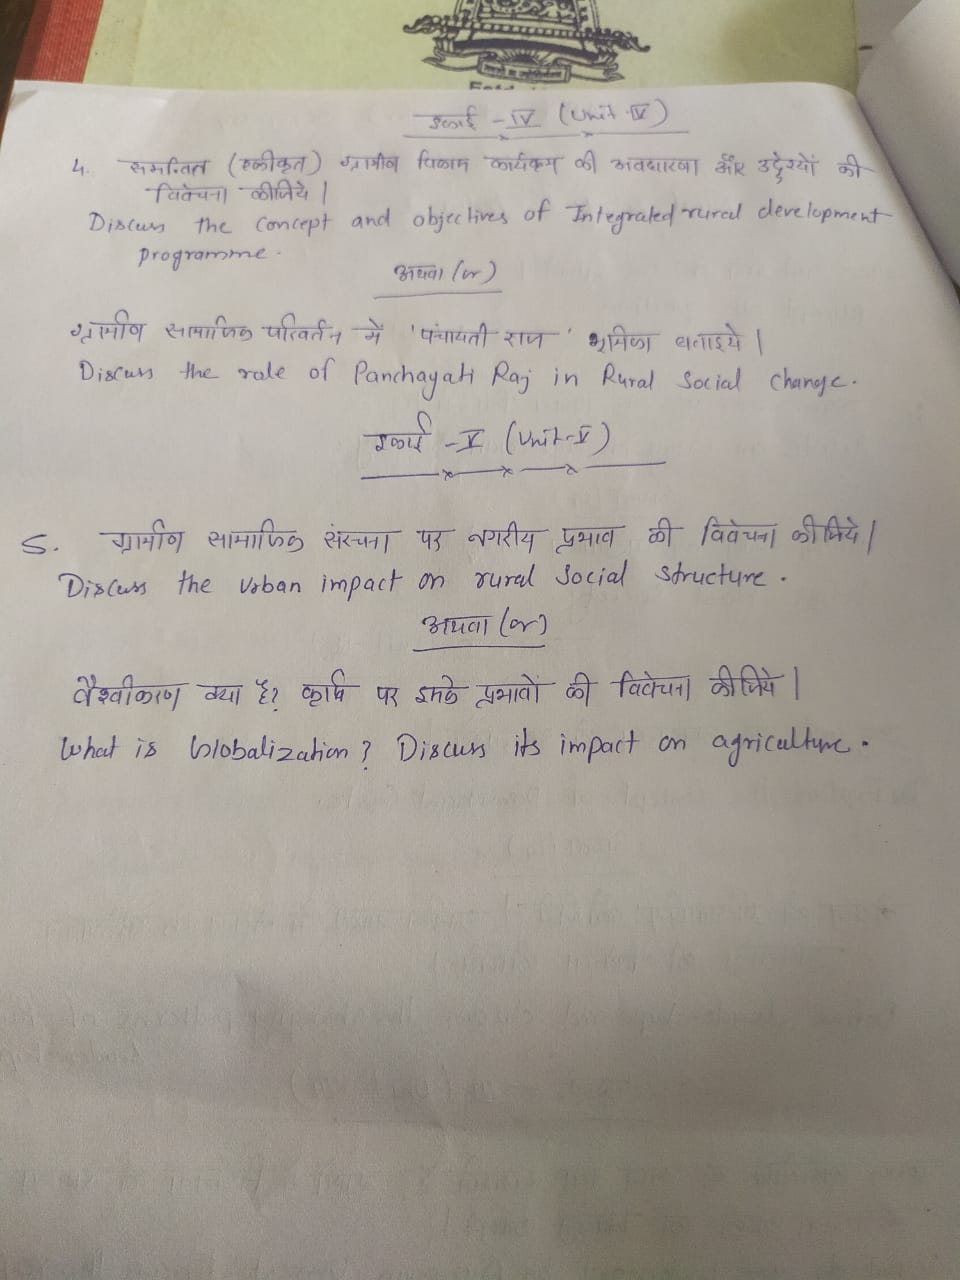 इकाई - IV (Unit-IV)
4. समन्वित (एकीकृत) ग्रामीण विकास कार्यक्रम की अवधारणा और उद्देश्यों की
विवेचना कीजिये |
Discuss the concept and objectives of Integrated rural development
programme.
अथवा (or)
ग्रामीण सामाजिक परिवर्तन में 'पंचायती राज' भूमिका बताइये |
Discuss the role of Panchayati Raj in Rural Social Change.
इकाई - V (Unit-V)
5. ग्रामीण सामाजिक संरचना पर नगरीय प्रभाव की विवेचना कीजिये |
Discuss the urban impact on rural Social structure.
अथवा (or)
वैश्वीकरण क्या है? कृषि पर इसके प्रभावों की विवेचना कीजिये |
What is Globalization? Discuss its impact on agriculture.